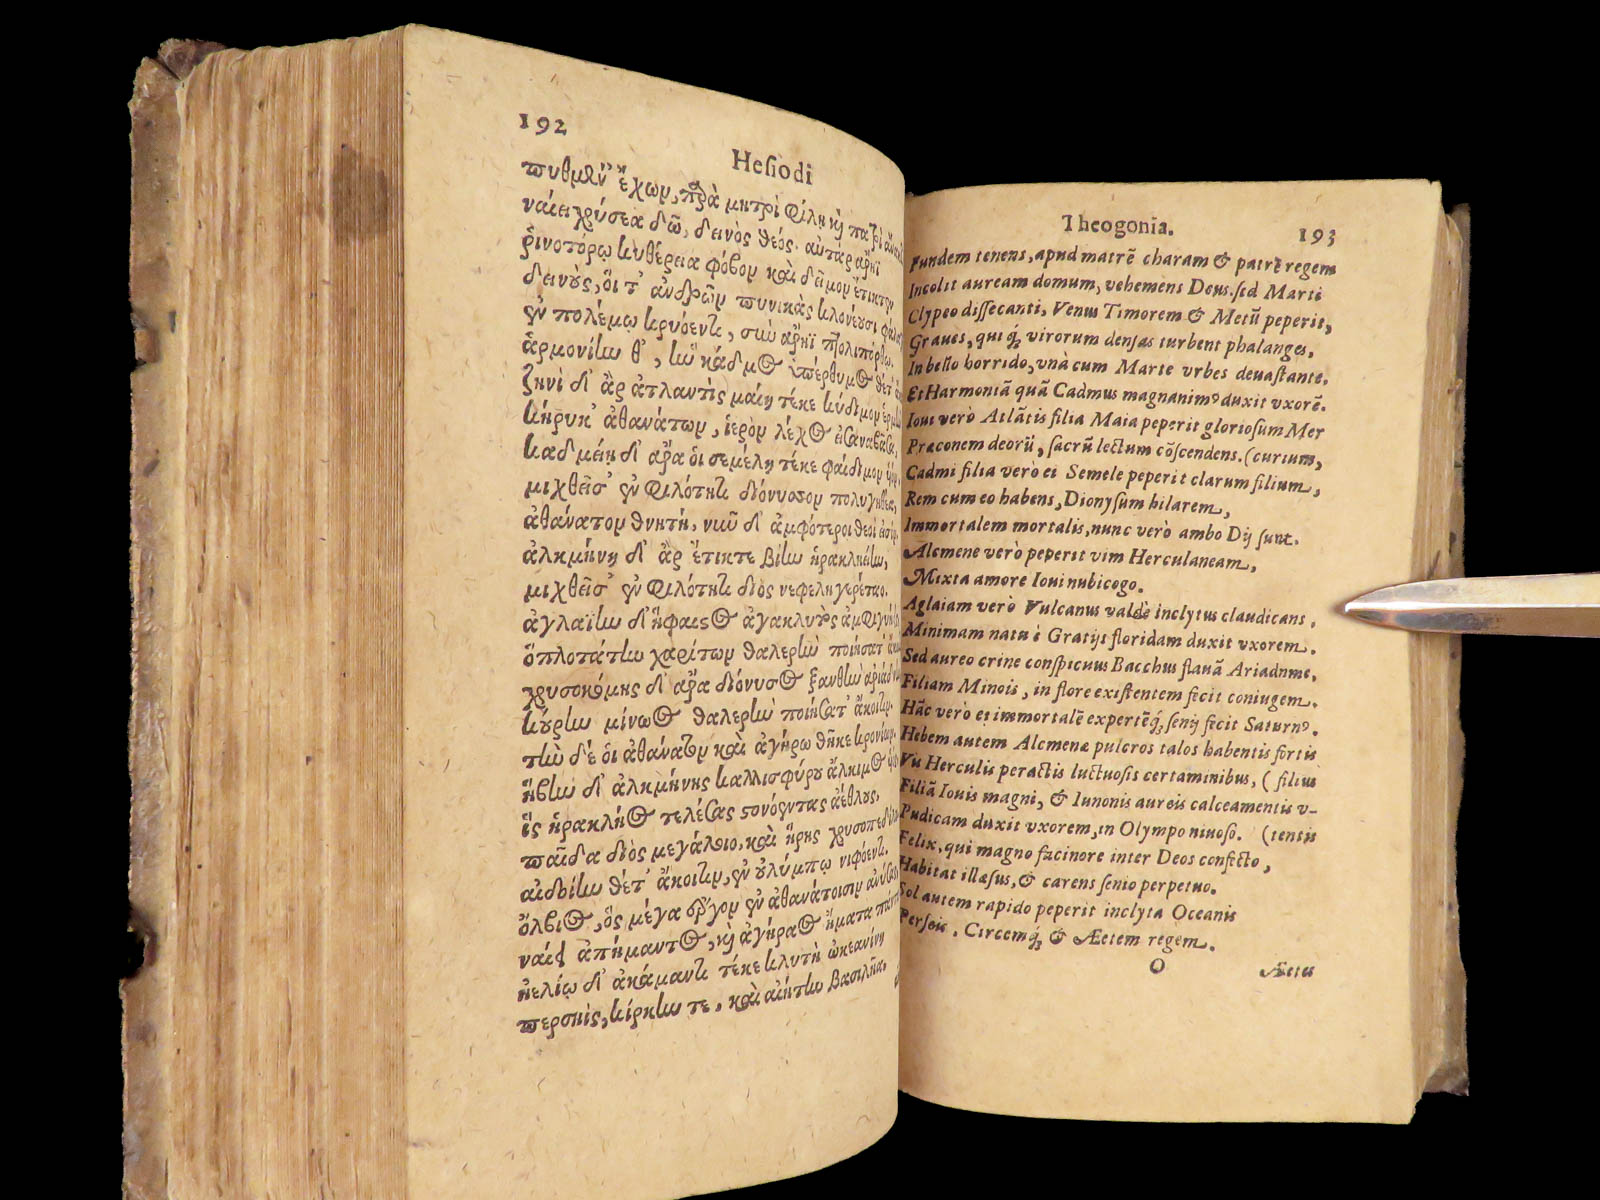 192
Hesiodi
πυθμέν' ἔχων, παρὰ μητρὶ φίλῃ καὶ πατρὶ
ναίει χρύσεα δῶ, δεινὸς θεός. αὐτὰρ ἄρηϊ
ῥινοτόρῳ κυθέρεια φόβον καὶ δεῖμον ἔτικτεν
δεινοὺς, οἵ τ' ἀνδρῶν πυκινὰς κλονέουσι
ἐν πολέμῳ κρυόεντι, σὺν ἄρηϊ πτολιπόρθῳ.
ἁρμονίην θ', ἣν κάδμος ὑπέρθυμος θέτ'
ζηνὶ δ' ἂρ ἀτλαντὶς μαίη τέκε κύδιμον
κήρυκ' ἀθανάτων, ἱερὸν λέχος εἰσαναβᾶσα,
καδμείη δ' ἄρα οἱ σεμέλη τέκε φαίδιμον
μιχθεῖσ' ἐν φιλότητι διόνυσον πολυγηθέα,
ἀθάνατον θνητή, νῦν δ' ἀμφότεροι θεοί εἰσιν.
ἀλκμήνη δ' ἂρ ἔτικτε βίην ἡρακληείην,
μιχθεῖσ' ἐν φιλότητι διὸς νεφεληγερέταο.
ἀγλαΐην δ' ἥφαιστος ἀγακλυτὸς
ὁπλοτάτην χαρίτων θαλερὴν ποιήσατ'
χρυσοκόμης δ' ἄρα διόνυσος ξανθὴν
κούρην μίνωος θαλερὴν ποιήσατ' ἄκοιτιν.
τὴν δέ οἱ ἀθάνατον καὶ ἀγήρω θῆκε κρονίων.
ἥβην δ' ἀλκμήνης καλλισφύρου ἄλκιμος
ἲς ἡρακλῆος τελέσας στονόεντας ἀέθλους,
παῖδα διὸς μεγάλοιο, καὶ ἥρης χρυσοπεδίλου
αἰδοίην θέτ' ἄκοιτιν, ἐν οὐλύμπῳ νιφόεντι.
ὄλβιος, ὃς μέγα ἔργον ἐν ἀθανάτοισιν ἀνύσας
ναίει ἀπήμαντος, καὶ ἀγήραος ἤματα πάντα
ἠελίῳ δ' ἀκάμαντι τέκε κλυτὴ ὠκεανίνη
περσηῒς, κίρκην τε, καὶ αἰήτην βασιλῆα.
Theogonia.
193
Fundem tenens, apud matrē charam & patrē regem
Incolit auream domum, vehemens Deus. sed Marti
Clypeo dissecanti, Venus Timorem & Metū peperit,
Graues, qui q́; virorum densas turbent phalanges,
In bello horrido, vnà cum Marte vrbes deuastante.
Et Harmoniā quā Cadmus magnanimꝰ duxit vxorē.
Ioui verò Atlātis filia Maia peperit gloriosum Mer
Præconem deorū, sacrū lectum cōscendens. (curium,
Cadmi filia verò ei Semele peperit clarum filium,
Rem cum eo habens, Dionysum hilarem,
Immortalem mortalis, nunc verò ambo Dij sunt.
Alcmene verò peperit vim Herculaneam,
Mixta amore Ioui nubicogo.
Aglaiam verò Vulcanus valdè inclytus claudicans,
Minimam natu è Gratijs floridam duxit vxorem.
Sed aureo crine conspicuus Bacchus flauā Ariadnme,
Filiam Minois, in flore existentem fecit coniugem.
Hāc verò et immortalē expertēq́; senij fecit Saturnꝰ.
Hebem autem Alcmenæ pulcros talos habentis fortis
Vis Herculis peractis luctuosis certaminibus, ( filius
Filiā Iouis magni, & Iunonis aureis calceamentis v-
Pudicam duxit vxorem, in Olympo niuoso. (tentis
Felix, qui magno facinore inter Deos confecto,
Habitat illæsus, & carens senio perpetuo.
Sol autem rapido peperit inclyta Oceanis
Perseis, Circemq́; & Æetem regem.
O
Æetes